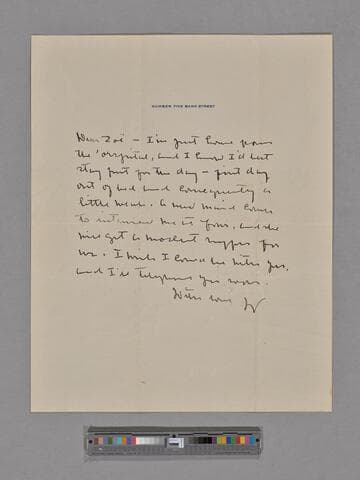 NUMBER FIVE BANK STREET
Dear Zoë – I'm just home from
the 'orspital, and I know I'd best
stay put for the day – first day
out of bed and consequently a
little weak. A new maid comes
to interview me at four, and she
will get a modest supper for
me. I wish I could be with you,
and I'll telephone you soon.
With love W